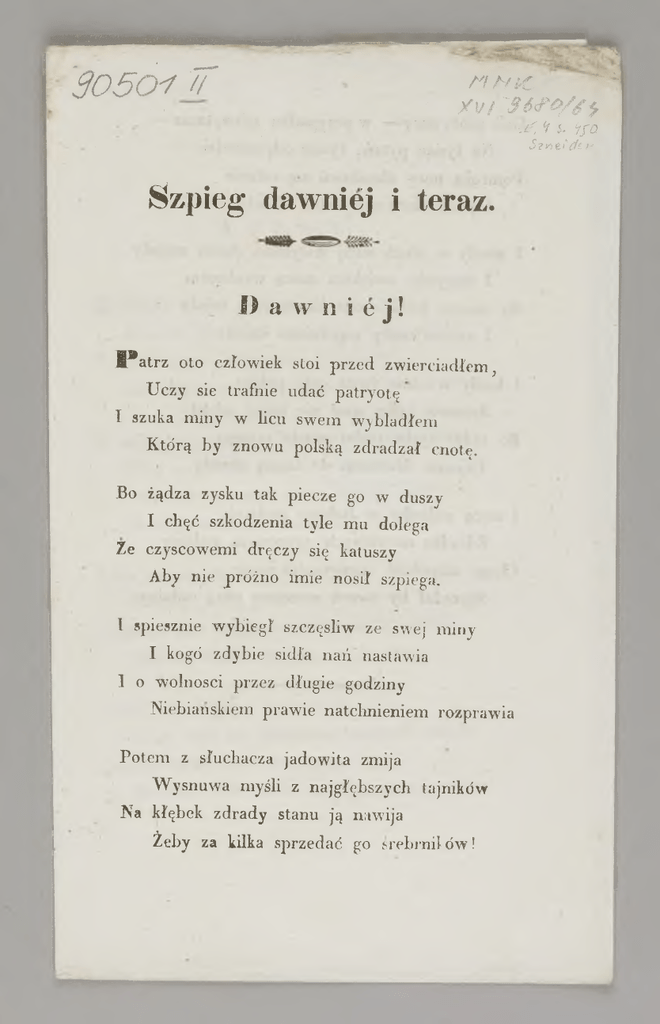 90501 II
MNK
XVI 3680/64
Szneider
Szpieg dawniéj i teraz.
Dawniéj!
Patrz oto człowiek stoi przed zwierciadłem,
Uczy sie trafnie udać patryotę
I szuka miny w licu swem wybladłem
Którą by znowu polską zdradzał cnotę.
Bo żądza zysku tak piecze go w duszy
I chęć szkodzenia tyle mu dolega
Że czyscowemi dręczy się katuszy
Aby nie próżno imie nosił szpiega.
I spiesznie wybiegł szczęsliw ze swej miny
I kogo zdybie sidła nań nastawia
I o wolnosci przez długie godziny
Niebiańskiem prawie natchnieniem rozprawia
Potem z słuchacza jadowita zmija
Wysnuwa myśli z najgłębszych tajników
Na kłębek zdrady stanu ją nawija
Żeby za kilka sprzedać go śrebrników!